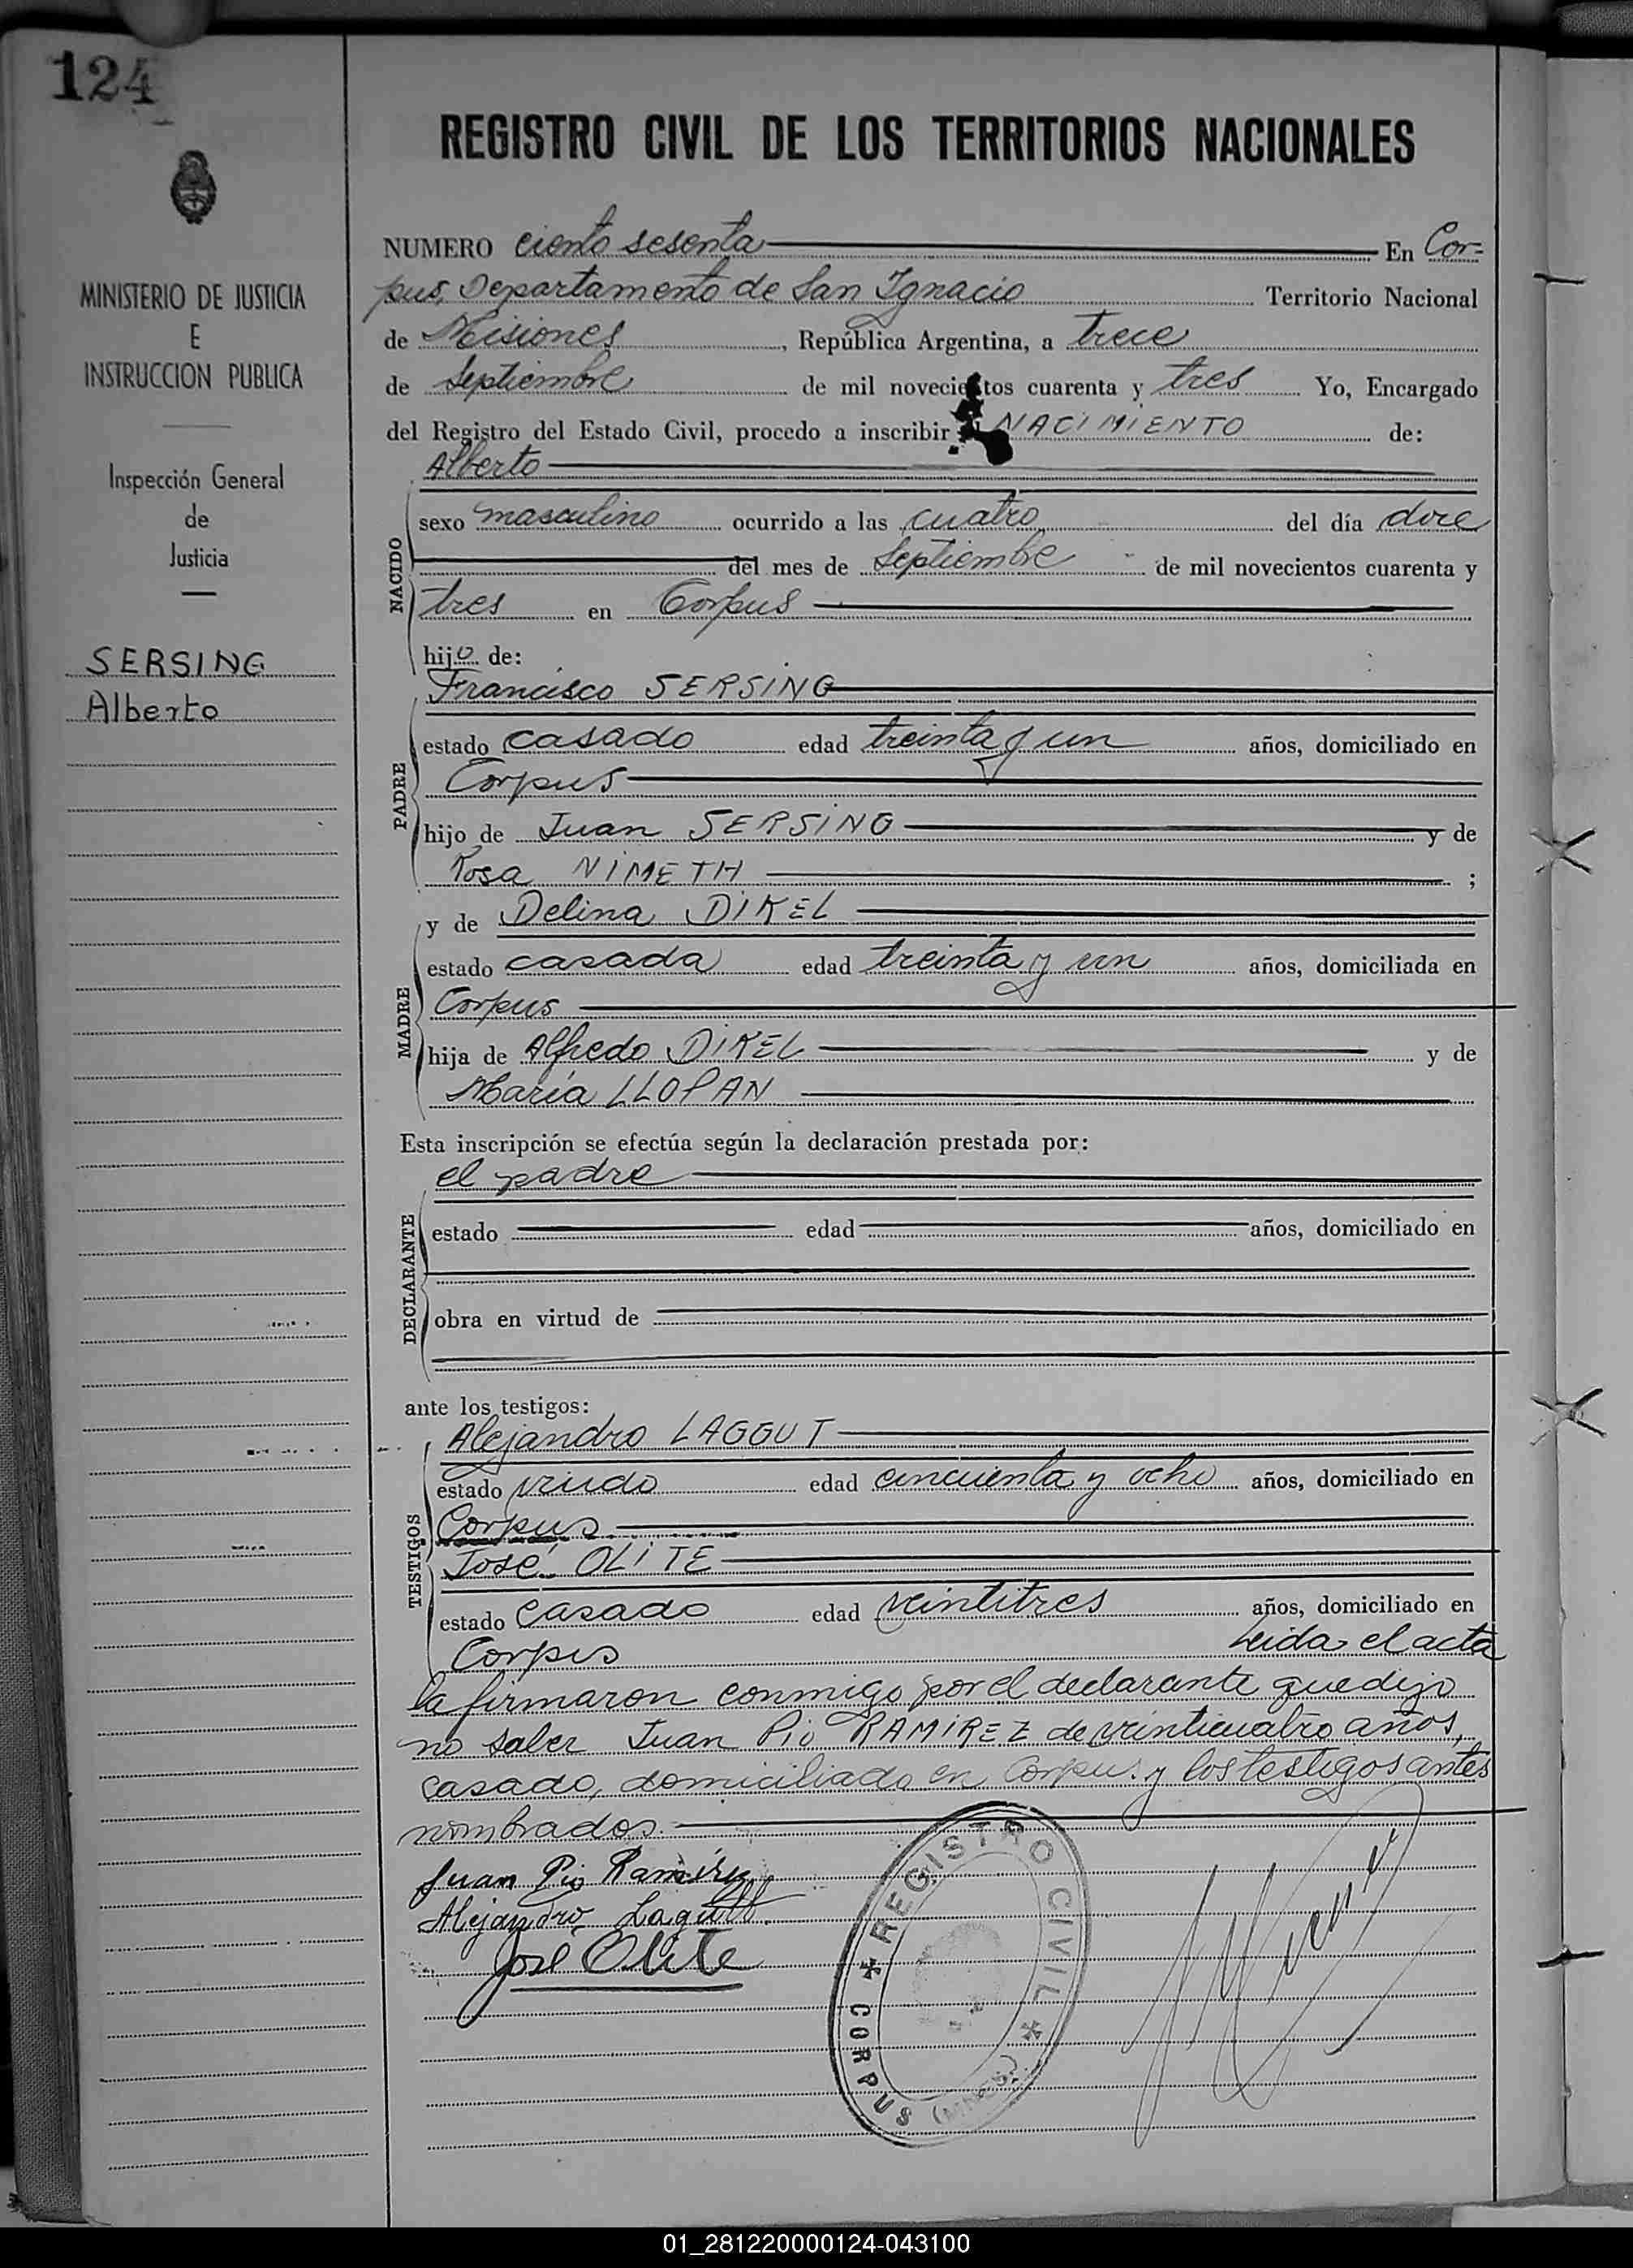 124
MINISTERIO DE JUSTICIA
E
INSTRUCCION PUBLICA
Inspección General
de
Justicia
SERSING
Alberto
REGISTRO CIVIL DE LOS TERRITORIOS NACIONALES
NUMERO ciento sesenta En Cor=
pus, Departamento de San Ignacio Territorio Nacional
de Misiones, República Argentina, a trece
de Septiembre de mil novecientos cuarenta y tres Yo, Encargado
del Registro del Estado Civil, procedo a inscribir NACIMIENTO de:
Alberto
NACIDO
sexo masculino ocurrido a las cuatro del día doce
del mes de Septiembre de mil novecientos cuarenta y
tres en Corpus
hijo de:
Francisco SERSING
PADRE
estado casado edad treinta y un años, domiciliado en
Corpus
hijo de Juan SERSING y de
Rosa NIMETH ;
y de Delina DIKEL
MADRE
estado casada edad treinta y un años, domiciliada en
Corpus
hija de Alfredo DIKEL y de
María LLOPAN
Esta inscripción se efectúa según la declaración prestada por:
el padre
DECLARANTE
estado edad años, domiciliado en
obra en virtud de
ante los testigos:
Alejandro LAGGUT
TESTIGOS
estado viudo edad cincuenta y ocho años, domiciliado en
Corpus
José OLITE
estado casado edad veintitres años, domiciliado en
Corpus Leida el acta
la firmaron conmigo por el declarante que dijo
no saber Juan Pio RAMIREZ de veinticuatro años,
casado, domiciliado en Corpus y los testigos antes
nombrados.
Juan Pio Ramirez
Alejandro Lagutt
José Olite
REGISTRO CIVIL
CORPUS (MNES.)
01_281220000124-043100